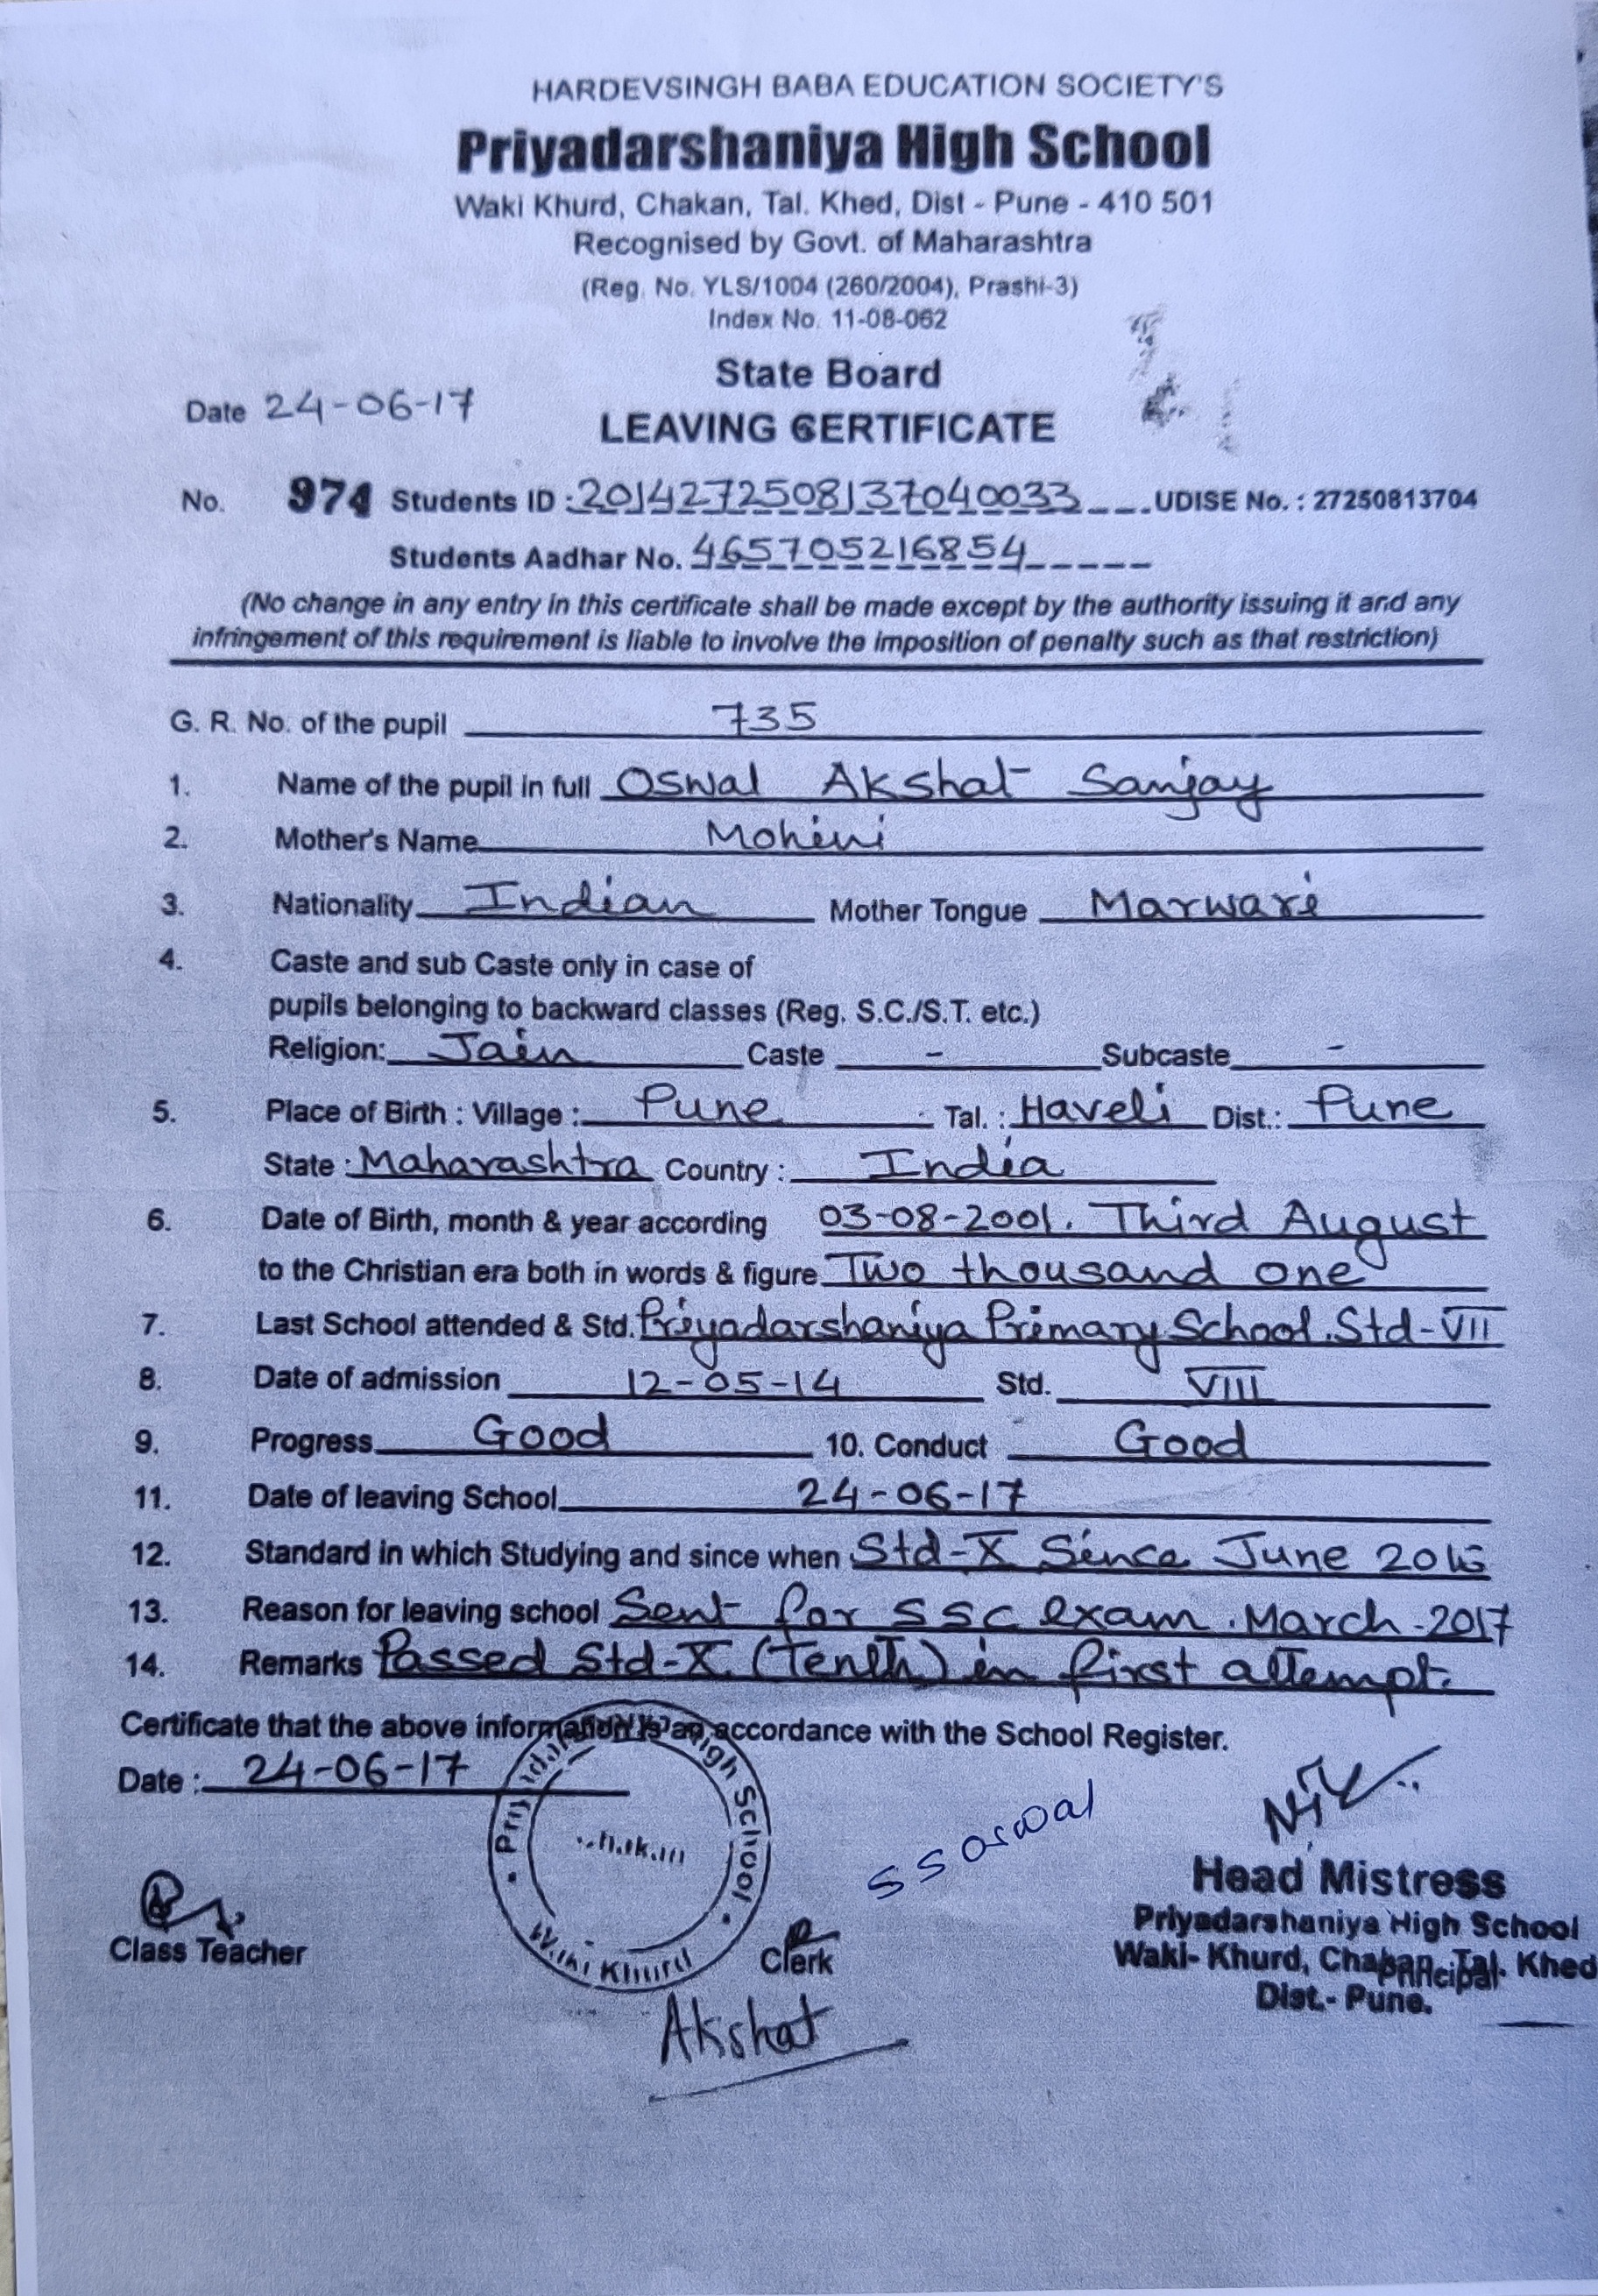 HARDEVSINGH BABA EDUCATION SOCIETY'S
Priyadarshaniya High School
Waki Khurd, Chakan, Tal. Khed, Dist - Pune - 410 501
Recognised by Govt. of Maharashtra
(Reg. No. YLS/1004 (260/2004), Prashi-3)
Index No. 11-08-062
State Board
Date 24-06-17
LEAVING CERTIFICATE
No. 974 Students ID : 2014272508137040033 UDISE No. : 27250813704
Students Aadhar No. 465705216854
(No change in any entry in this certificate shall be made except by the authority issuing it and any
infringement of this requirement is liable to involve the imposition of penalty such as that restriction)
G. R. No. of the pupil 735
1. Name of the pupil in full Oswal Akshat Sanjay
2. Mother's Name Mohini
3. Nationality Indian Mother Tongue Marwari
4. Caste and sub Caste only in case of
pupils belonging to backward classes (Reg. S.C./S.T. etc.)
Religion: Jain Caste - Subcaste -
5. Place of Birth : Village : Pune Tal. : Haveli Dist.: Pune
State : Maharashtra Country : India
6. Date of Birth, month & year according 03-08-2001. Third August
to the Christian era both in words & figure Two thousand one
7. Last School attended & Std. Priyadarshaniya Primary School. Std-VII
8. Date of admission 12-05-14 Std. VIII
9. Progress Good 10. Conduct Good
11. Date of leaving School 24-06-17
12. Standard in which Studying and since when Std-X Since June 2016
13. Reason for leaving school Sent for SSC exam. March-2017
14. Remarks Passed Std-X (Tenth) in first attempt.
Certificate that the above information is an accordance with the School Register.
Date : 24-06-17
High School
Waki Khurd
S S Oswal
Head Mistress
Priyadarshaniya High School
Waki- Khurd, Chakan, Tal. Khed
Dist.- Pune.
Principal
Class Teacher
Clerk
Akshat